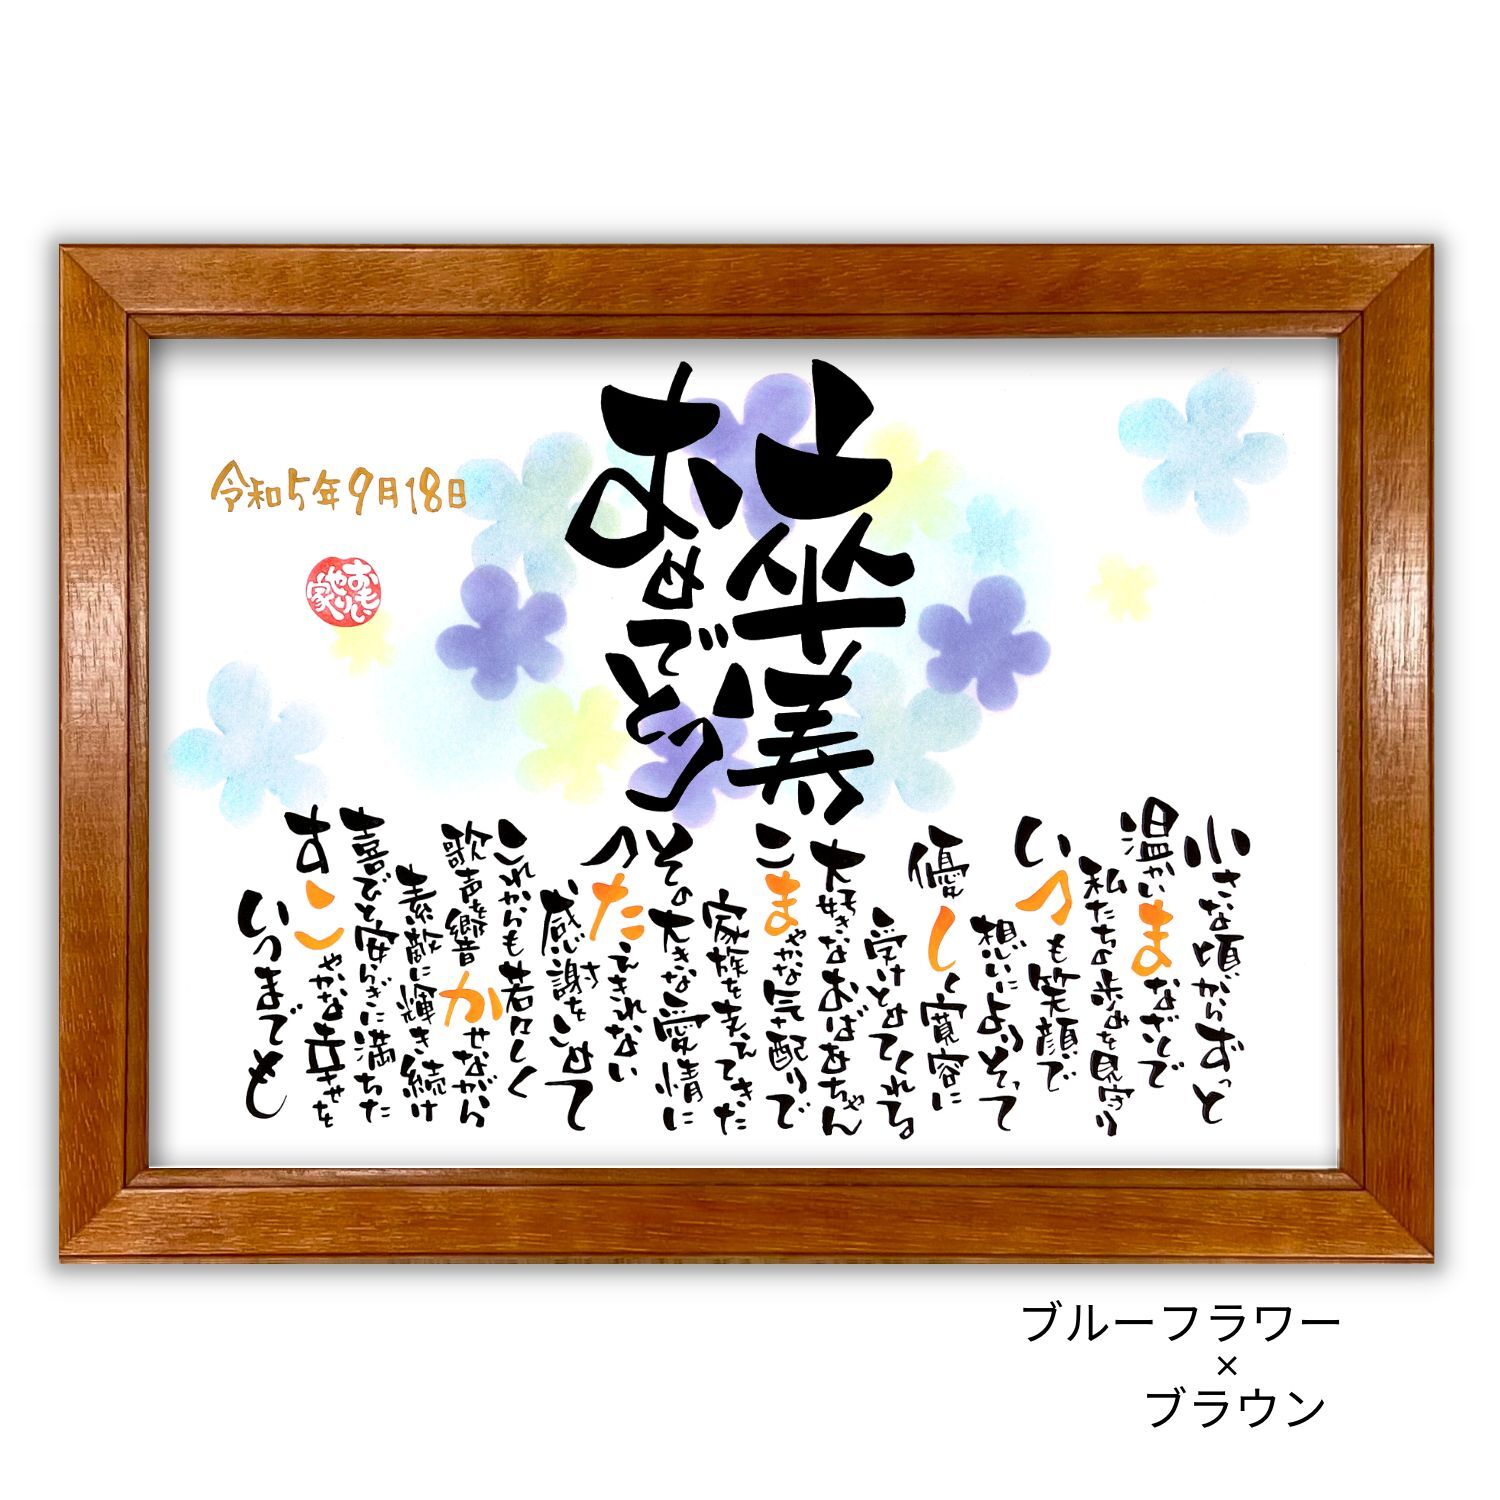 卒寿
おめでとう
令和5年9月18日
おもいやり家
小さな頃からずっと
温かいまなざしで
私たちの歩みを見守り
いつも笑顔で
想いによりそって
優しく寛容に
受けとめてくれる
大好きなおばあちゃん
こまやかな気配りで
家族を支えてきた
その大きな愛情に
つたえきれない
感謝をこめて
これからも若々しく
歌声を響かせながら
素敵に輝き続け
喜びと安らぎに満ちた
すこやかな幸せを
いつまでも
ブルーフラワー
×
ブラウン